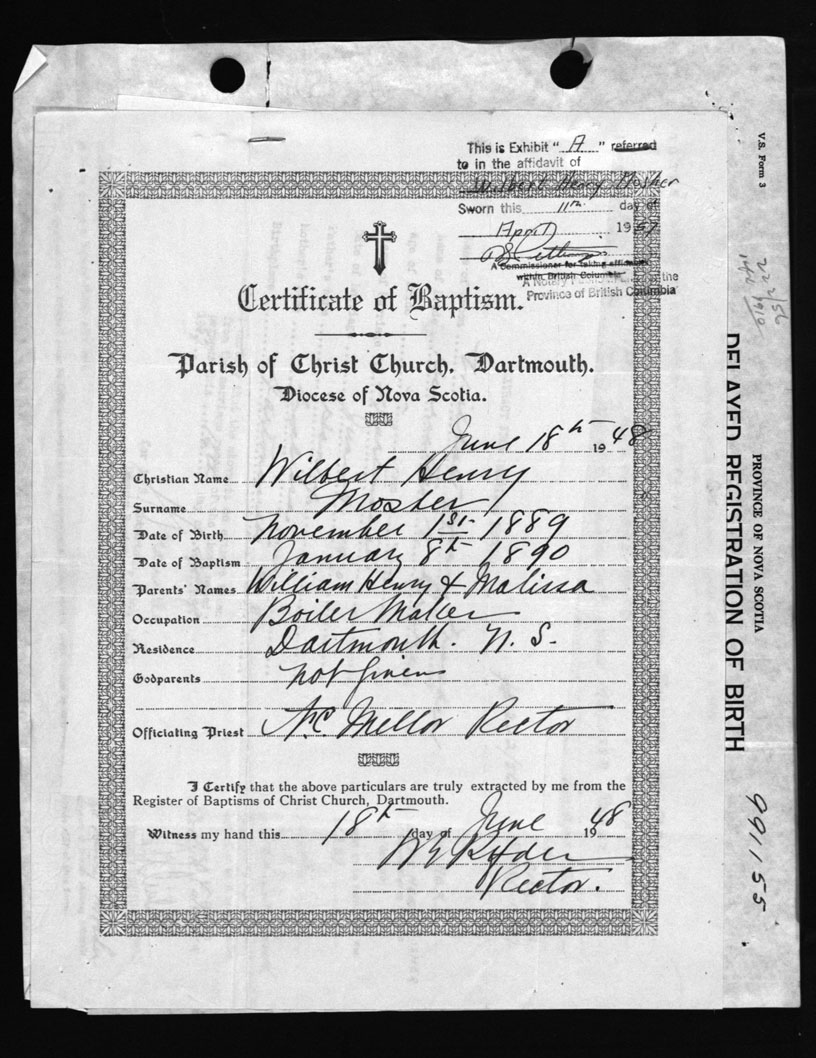 This is Exhibit " A " referred
to in the affidavit of
Wilbert Henry Mosher
Sworn this 11th day of
April 1957
A Commissioner for taking affidavits
within British Columbia
A Notary Public in and for the
Province of British Columbia
Certificate of Baptism.
Parish of Christ Church, Dartmouth.
Diocese of Nova Scotia.
June 18th 1948
Christian Name Wilbert Henry
Surname Mosher
Date of Birth November 1st 1889
Date of Baptism January 8th 1890
Parents' Names William Henry & Malissa
Occupation Boiler Maker
Residence Dartmouth. N. S.
Godparents not given
Officiating Priest Mellor Rector
I Certify that the above particulars are truly extracted by me from the
Register of Baptisms of Christ Church, Dartmouth.
Witness my hand this 18th day of June 1948
Ryder
Rector.
V.S. Form 3
PROVINCE OF NOVA SCOTIA
DELAYED REGISTRATION OF BIRTH
991155